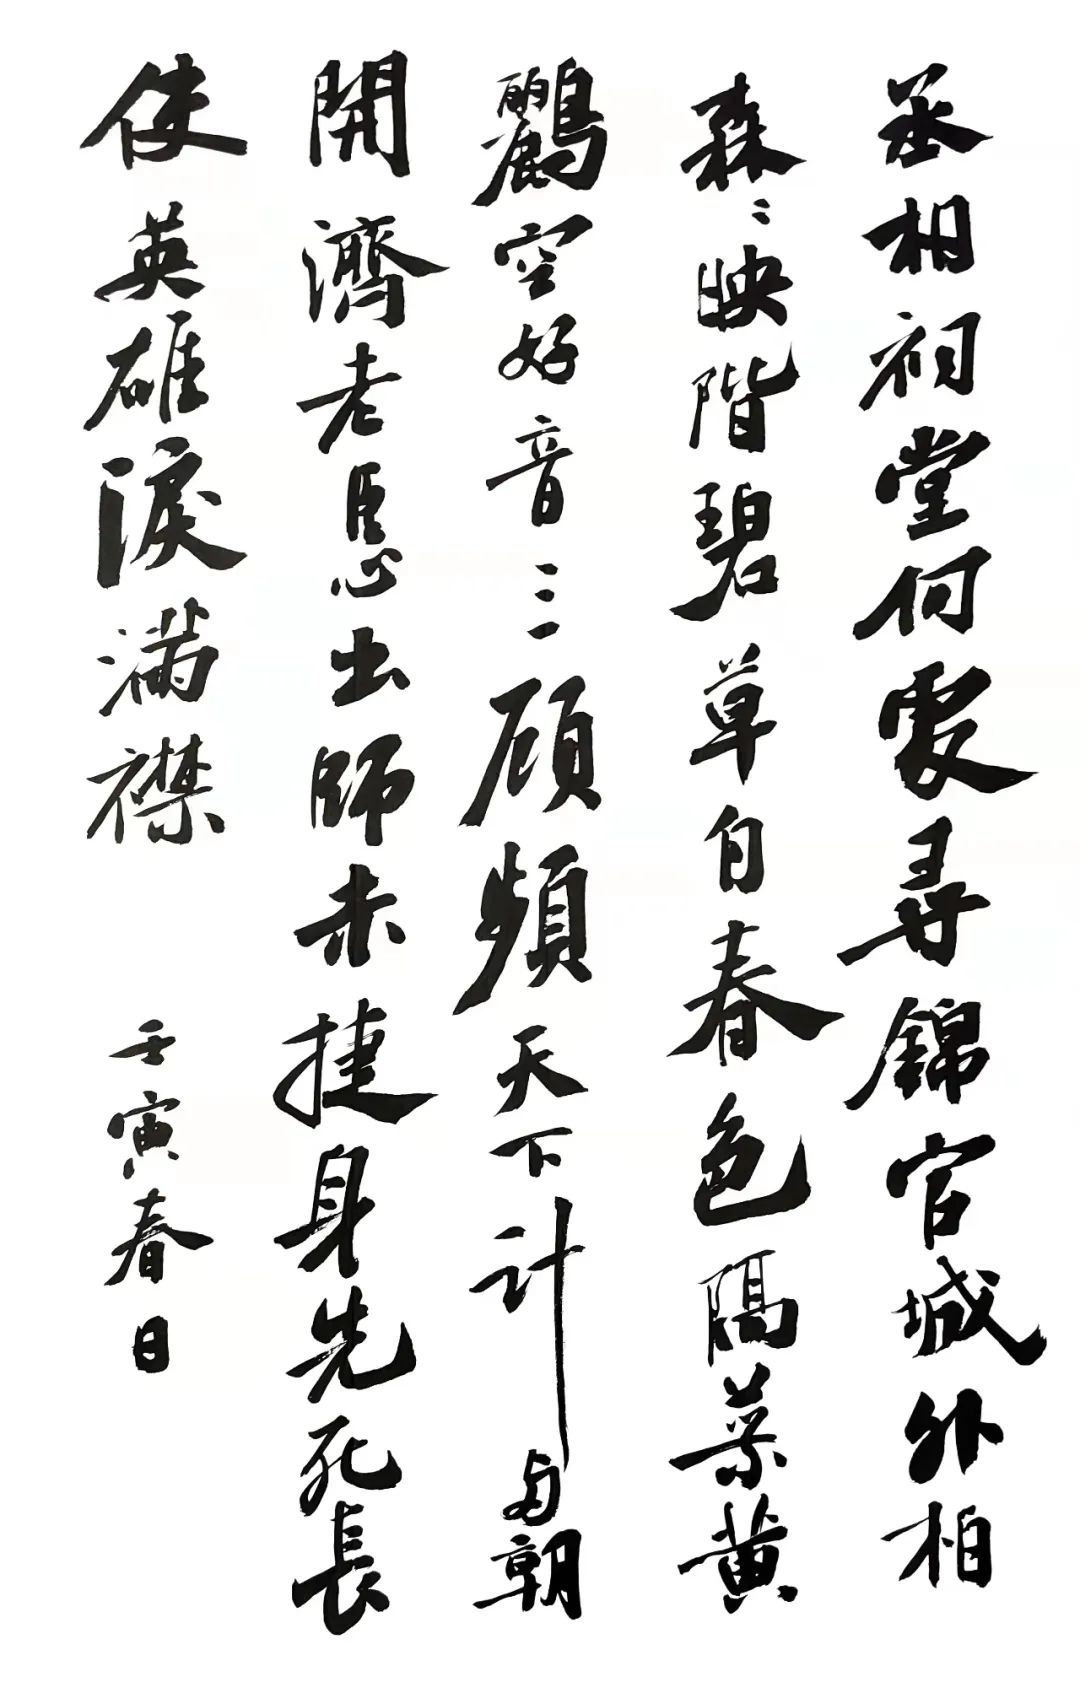 丞相祠堂何處尋錦官城外柏
森〻映階碧草自春色隔葉黄
鸝空好音三顧頻天下計兩朝
開濟老臣心出師未捷身先死長
使英雄淚滿襟
壬寅春日